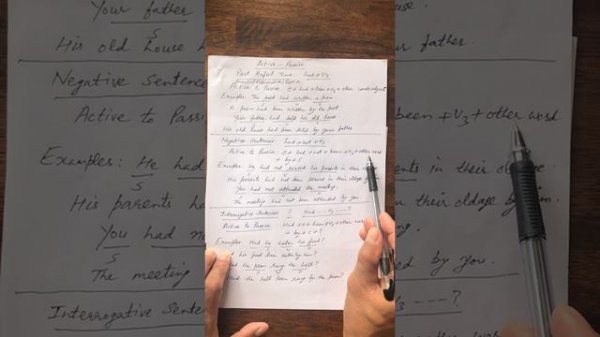 Your father
S
His old house h
Negative Sentenc
Active to Passi
Examples: He had
S
His parents had
You had n
S
The meeting
Interrogative Sente
Active - Passive
Past Perfect Tense had + V3
Active to Passive O + had + been + V3 + other words + by + S
Examples: The poet had written a poem
A poem had been written by the poet
Your father had sold his old house
His old house had been sold by your father
Negative Sentences had + not + V3
Active to Passive O + had + not + been + V3 + other word
+ by + S
Examples: He had not served his parents in their
His parents had not been served in their oldage
You had not attended the meeting.
The meeting had not been attended by you
Interrogative Sentence ? Had ---- V3 --- ?
Active to Passive Had + O + been + V3 + other
+ by + S + ?
Examples: Had he eaten his food?
Had his food been eaten by him?
Had the peon rung the bell?
Had the bell been rung by the peon?
father.
been + V3 + other word
nts in their oldage
in their oldage by him.
ed by you.
V3 ---- ?